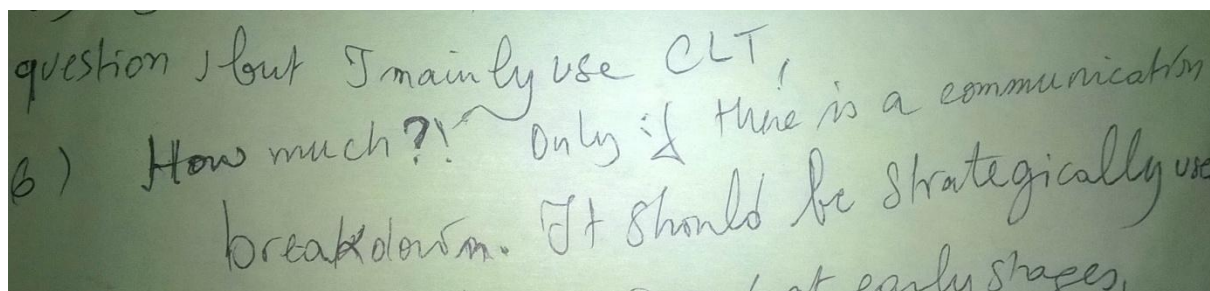 question, but I mainly use CLT,
6) How much?! Only if there is a communication
breakdown. It should be strategically use
at early stages,